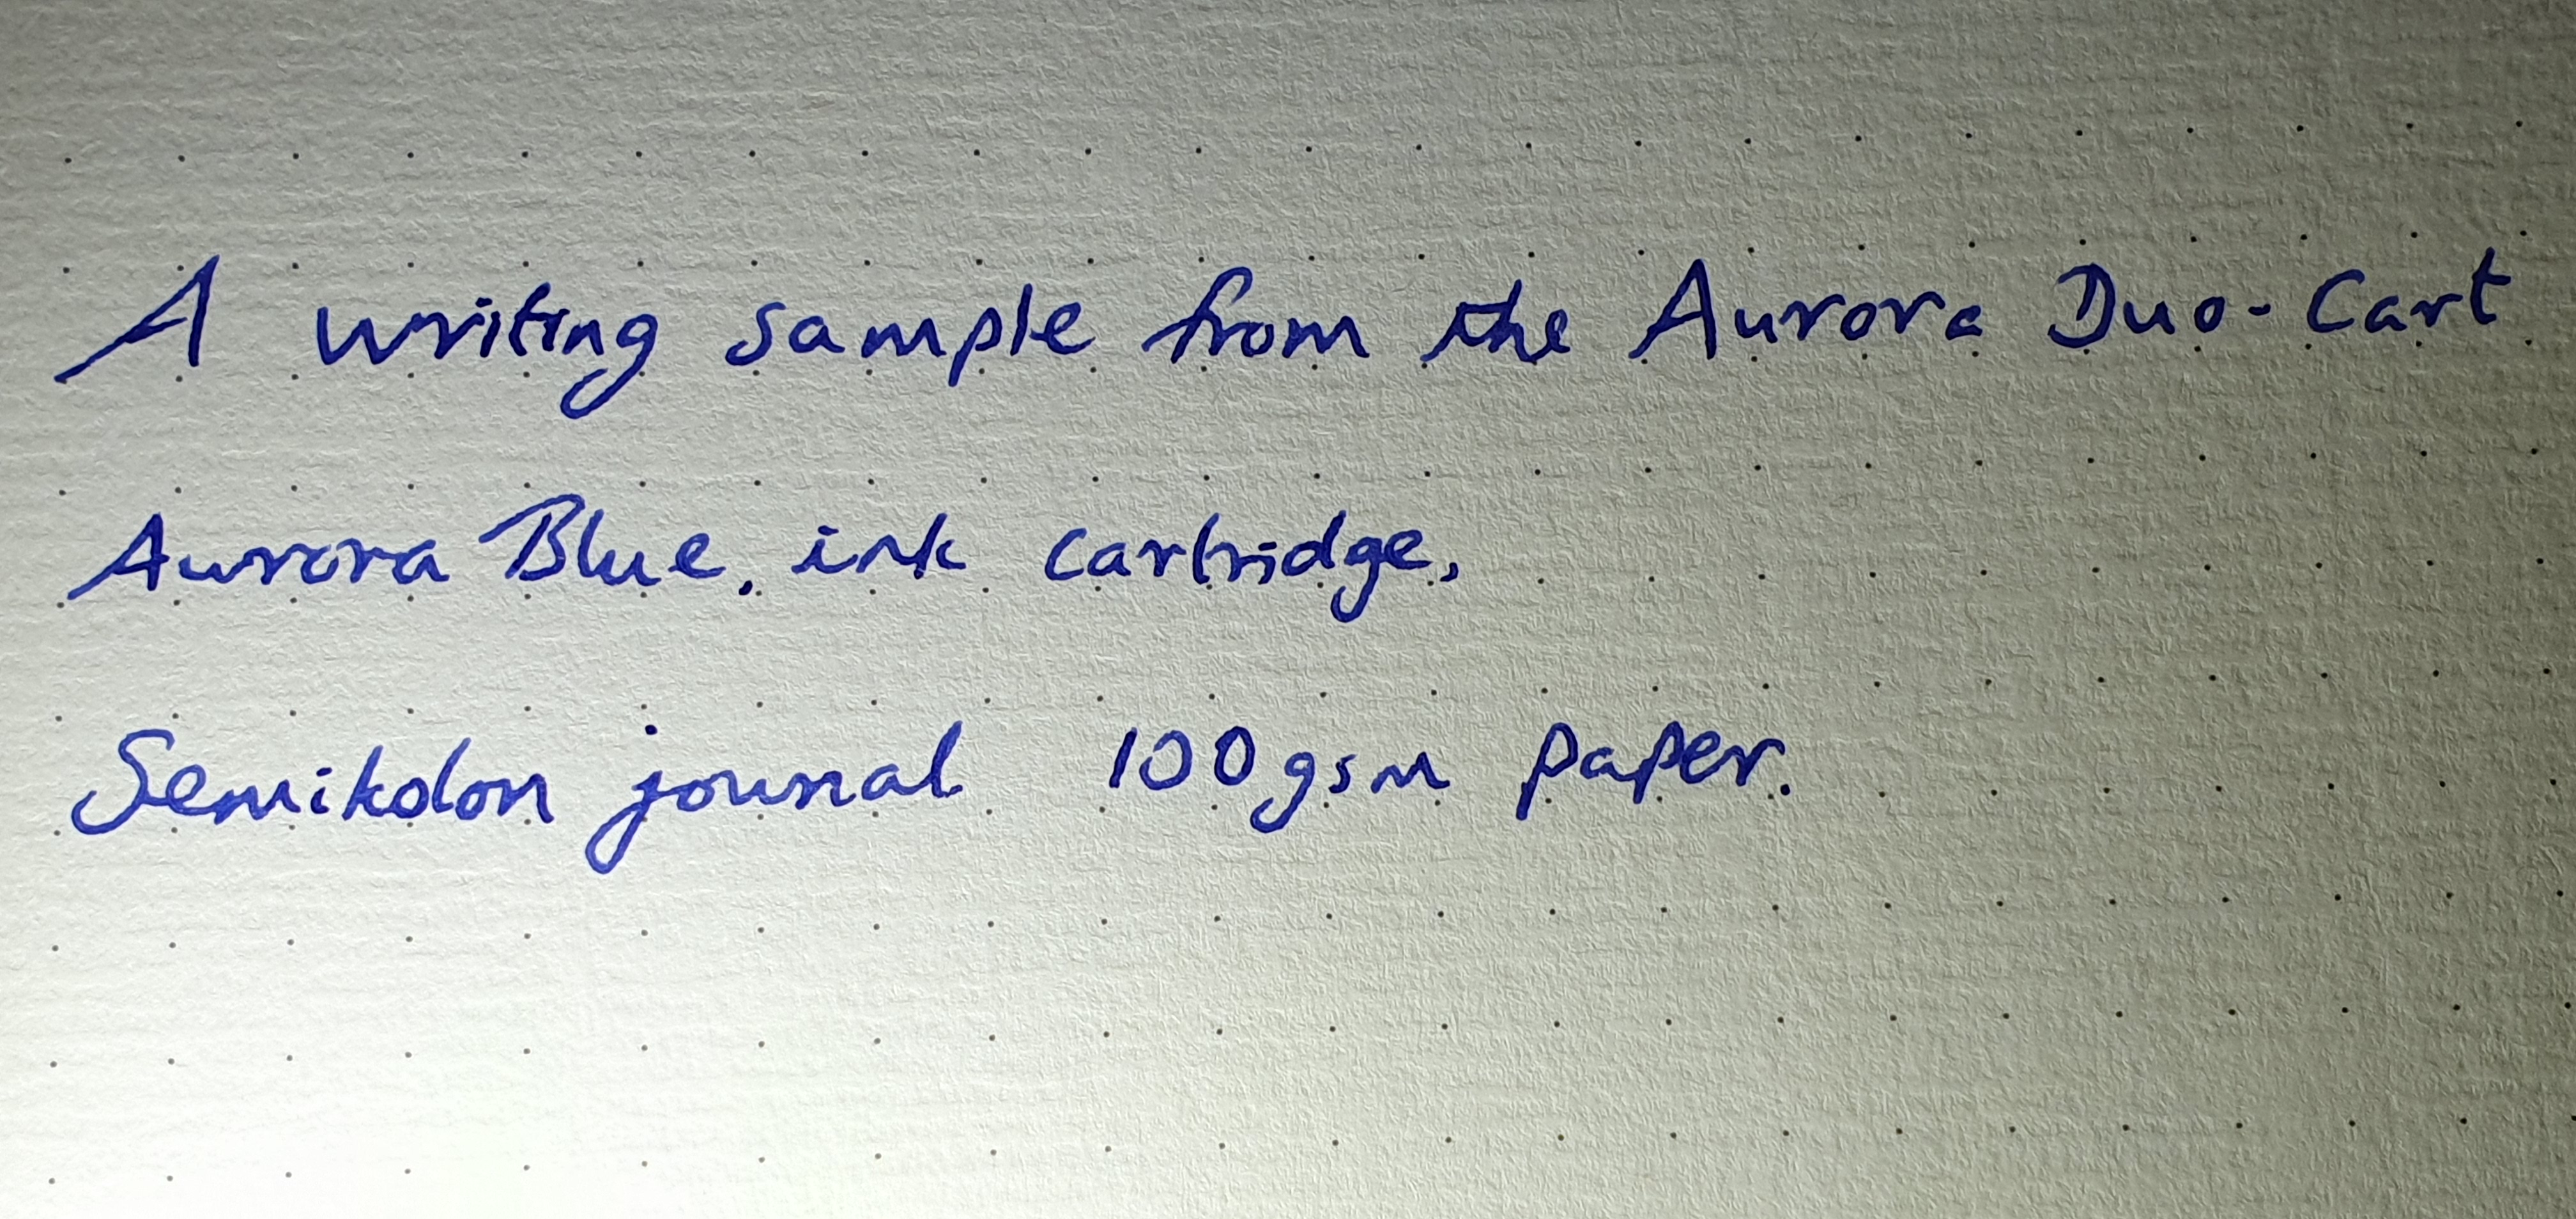 A writing sample from the Aurora Duo-Cart
Aurora Blue. ink cartridge.
Semikolon journal 100gsm paper.